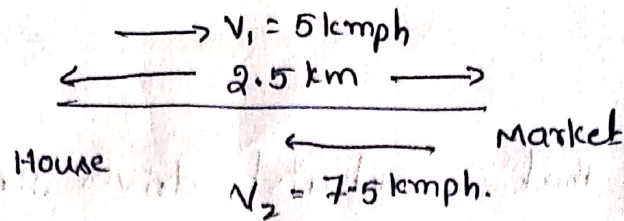 V₁ = 5 kmph
2.5 km
House
Market
V₂ = 7.5 kmph.